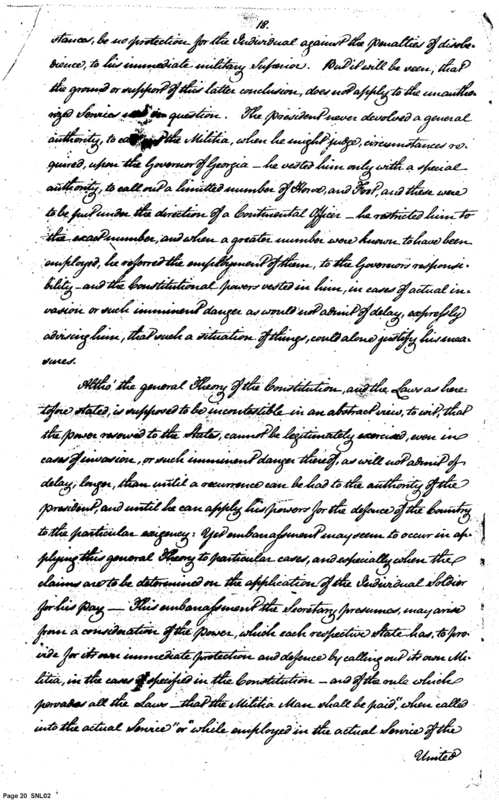 18.
stances, be no protection for the Individual against the penalties of disobe-
dience, to his immediate military Superior. But it will be seen, that
the ground or support of this latter conclusion, does not apply to the unautho-
rized Services in question. The president never devolved a general
authority, to call the Militia, when he might judge, circumstances re-
quired, upon the Governor of Georgia – he vested him only with a special
authority, to call out a limitted number of Horse, and Foot, and these were
to be put under the direction of a Continental Officer – he restricted him to
the exact number, and when a greater number were known to have been
employed, he referred the employment of them, to the Governors responsi-
bility – and the Constitutional powers vested in him, in cases of actual in-
vasion or such imminent danger as would not admit of delay, expressly
advising him, that such a situation of things, could alone justify his mea-
sures.
Altho' the general Theory of the Constitution, and the Laws as here-
tofore stated, is supposed to be incontestible in an abstract view, to wit, that
the power reserved to the States, cannot be legitimately exercised, even in
cases of invasion, or such imminent danger thereof, as will not admit of
delay, longer, than until a recurrence can be had to the authority of the
president, and until he can apply his powers for the defence of the Country
to the particular exigency: Yet embarrassment may seem to occur in ap-
plying this general Theory to particular cases, and especially when the
claims are to be determined on the application of the Individual Soldier
for his pay – This embarrassment the Secretary presumes, may arise
from a consideration of the power, which each respective State has, to pro-
vide for its own immediate protection and defence by calling out its own Mi-
litia, in the cases specified in the Constitution – and of the rule which
pervades all the Laws – that the Militia Man shall be paid, "when called
into the actual Service" or "while employed in the actual Service of the
United
Page 20 SNL02